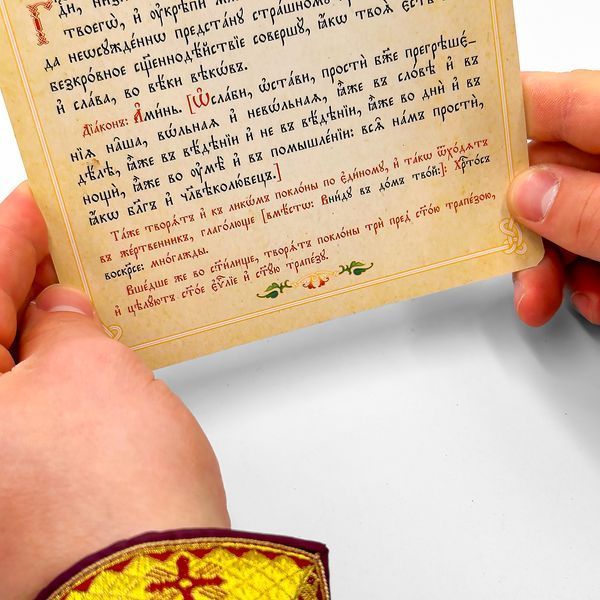 твоегѡ̀, и҆ ᲂу҆крѣпи́
да неѡсꙋжде́ннѡ предста́нꙋ стра́шномꙋ
безкро́вное сщ҃еннодѣ́йствїе соверш꙽ꙋ̀, ꙗ҆́кѡ твоѧ̀ є҆́сть
и҆ сла́ва, во вѣ́ки вѣкѡ́въ.
Дїа́конъ: А҆ми́нь. [Ѡ҆сла́би, ѡ҆ста́ви, простѝ бж҃е прегрѣшє́-
нїѧ на̑ша, вѡ́льнаѧ и҆ невѡ́льнаѧ, ꙗ҆̀же въ сло́вѣ и҆ въ
дѣ́лѣ, ꙗ҆̀же въ вѣ́дѣнїи и҆ не въ вѣ́дѣнїи, ꙗ҆̀же во днѝ и҆ въ
нощѝ, ꙗ҆̀же во ᲂу҆мѣ̀ и҆ въ помышле́нїи: всѧ̑ на́мъ простѝ,
ꙗ҆́кѡ бл҃гъ и҆ чл҃вѣколю́бецъ.]
Та́же творѧ́тъ и҆ къ ли́кѡмъ покло́ны по є҆ди́номꙋ, и҆ та́кѡ ѿхо́дѧтъ
въ же́ртвенникъ, глаго́люще [вмѣ́стѡ: Вни́дꙋ въ до́мъ тво́й:]: Хрⷭ҇то́съ
воскр҃се: многа́жды.
Вше́дше же во ст҃и́лище, творѧ́тъ покло́ны трѝ пред̾ ст҃о́ю трапе́зою,
и҆ цѣлꙋ́ютъ ст҃о́е є҆ѵⷢ҇лїе и҆ ст҃ꙋ́ю трапе́зꙋ.